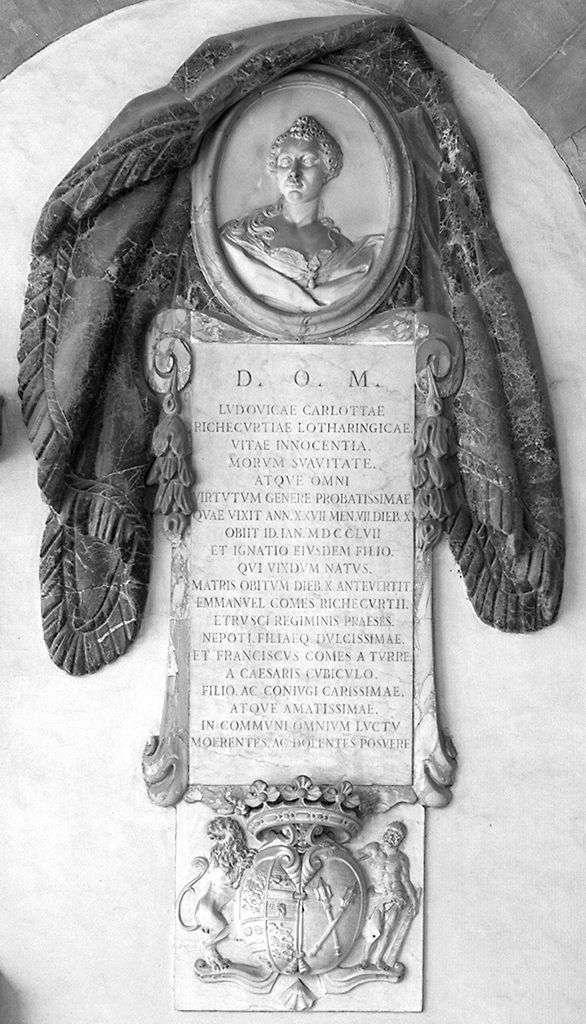 D. O. M.
LVDOVICAE CARLOTTAE
RICHECVRTIAE LOTHARINGICAE
VITAE INNOCENTIA.
MORVM SVAVITATE.
ATQVE OMNI
VIRTVTVM GENERE PROBATISSIMAE
QVAE VIXIT ANN. XXVII MEN. VII. DIEB. X
OBIIT ID. IAN. MDCCLVII
ET IGNATIO EIVSDEM FILIO.
QVI VIXDVM NATVS.
MATRIS OBITVM DIEB. X. ANTEVERTIT.
EMMANVEL COMES RICHECVRTII.
ETRVSCI REGIMINIS PRAESES.
NEPOTI. FILIAEQ. DVLCISSIMAE.
ET FRANCISCVS COMES A TVRRE
A CAESARIS CVBICVLO.
FILIO. AC CONIVGI CARISSIMAE.
ATQVE AMATISSIMAE.
IN COMMVNI OMNIVM LVCTV
MOERENTES. AC DOLENTES POSVERE